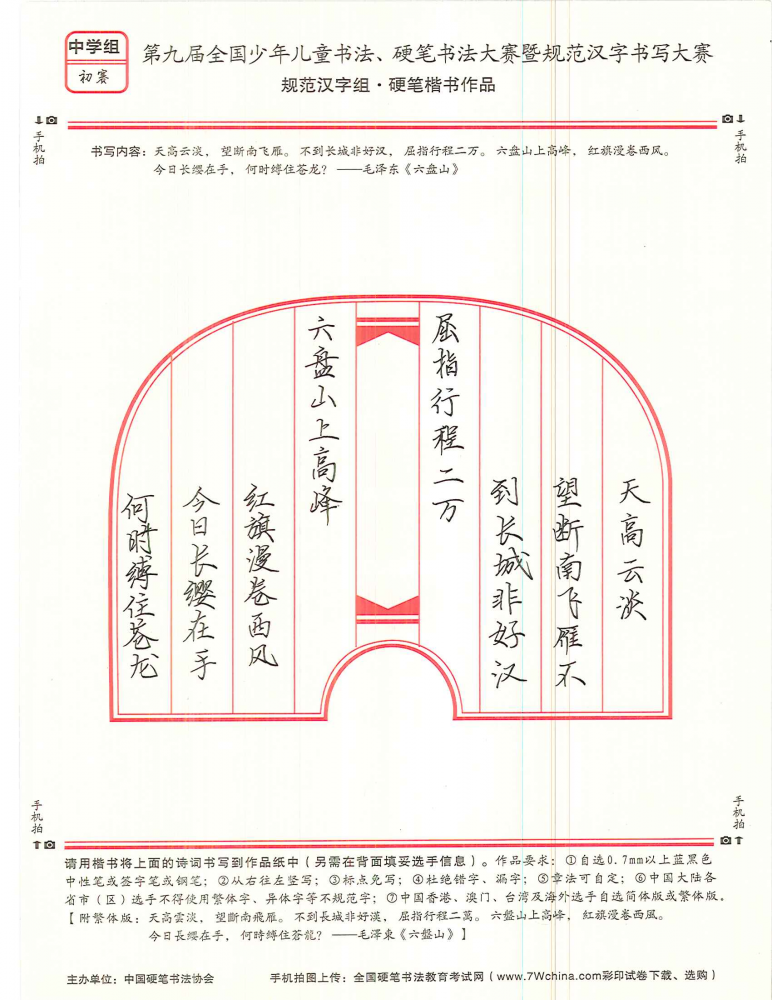 中学组
初赛
第九届全国少年儿童书法、硬笔书法大赛暨规范汉字书写大赛
规范汉字组·硬笔楷书作品
手机拍
手机拍
书写内容：天高云淡， 望断南飞雁。 不到长城非好汉， 屈指行程二万。 六盘山上高峰， 红旗漫卷西风。
今日长缨在手， 何时缚住苍龙？ ——毛泽东《六盘山》
天高云淡
望断南飞雁不
到长城非好汉
屈指行程二万
六盘山上高峰
红旗漫卷西风
今日长缨在手
何时缚住苍龙
手机拍
手机拍
请用楷书将上面的诗词书写到作品纸中（另需在背面填妥选手信息）。作品要求：①自选0.7mm以上蓝黑色
中性笔或签字笔或钢笔；②从右往左竖写；③标点免写；④杜绝错字、漏字；⑤章法可自定；⑥中国大陆各
省市（区）选手不得使用繁体字、异体字等不规范字；⑦中国香港、澳门、台湾及海外选手自选简体版或繁体版。
【附繁体版：天高雲淡， 望斷南飛雁。 不到長城非好漢， 屈指行程二萬。 六盤山上高峰， 紅旗漫卷西風。
今日長纓在手， 何時縛住蒼龍？ ——毛澤東《六盤山》】
主办单位：中国硬笔书法协会
手机拍图上传：全国硬笔书法教育考试网（www.7Wchina.com彩印试卷下载、选购）